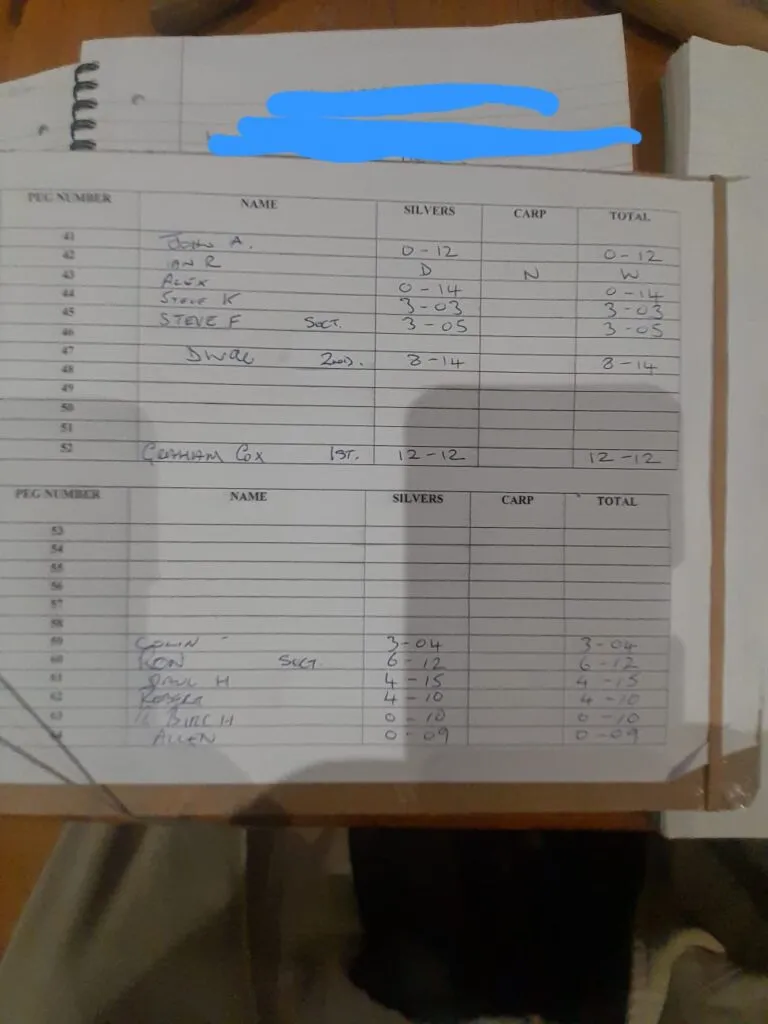 PEG NUMBER NAME SILVERS CARP TOTAL
41 JOHN A. 0-12 0-12
42 IAN R D N W
43 ALEX 0-14 0-14
44 STEVE K 3-03 3-03
45 STEVE F SECT. 3-05 3-05
46
47 2ND. 8-14 8-14
48
49
50
51
52 GRAHAM COX 1ST. 12-12 12-12
PEG NUMBER NAME SILVERS CARP TOTAL
53
54
55
56
57
58
59 COLIN 3-04 3-04
60 RON SECT. 6-12 6-12
61 PAUL H 4-15 4-15
62 ROBERT 4-10 4-10
63 BIRCH 0-10 0-10
ALLEN 0-09 0-09